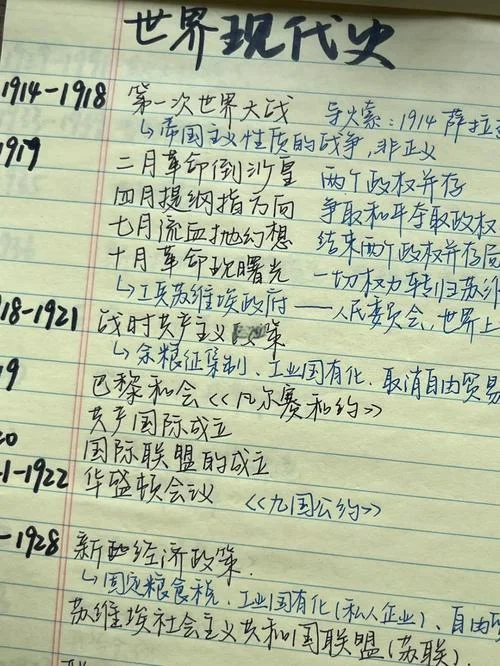 世界现代史
1914-1918 第一次世界大战 导火索:1914 萨拉
↳帝国主义性质的战争,非正义
1917 二月革命倒沙皇 两个政权并存
四月提纲指方向 争取和平夺取政权
七月流血抛幻想 结束两个政权并存局
十月革命现曙光 一切权力转归苏维
↳工兵苏维埃政府——人民委员会,世界上
18-1921 战时共产主义政策
↳余粮征集制、工业国有化、取消自由贸易
9 巴黎和会《凡尔赛和约》
共产国际成立
20 国际联盟的成立
1-1922 华盛顿会议 《九国公约》
-1928 新的经济政策.
↳固定粮食税、工业国有化(私人企业)、自由
苏维埃社会主义共和国联盟(苏联).